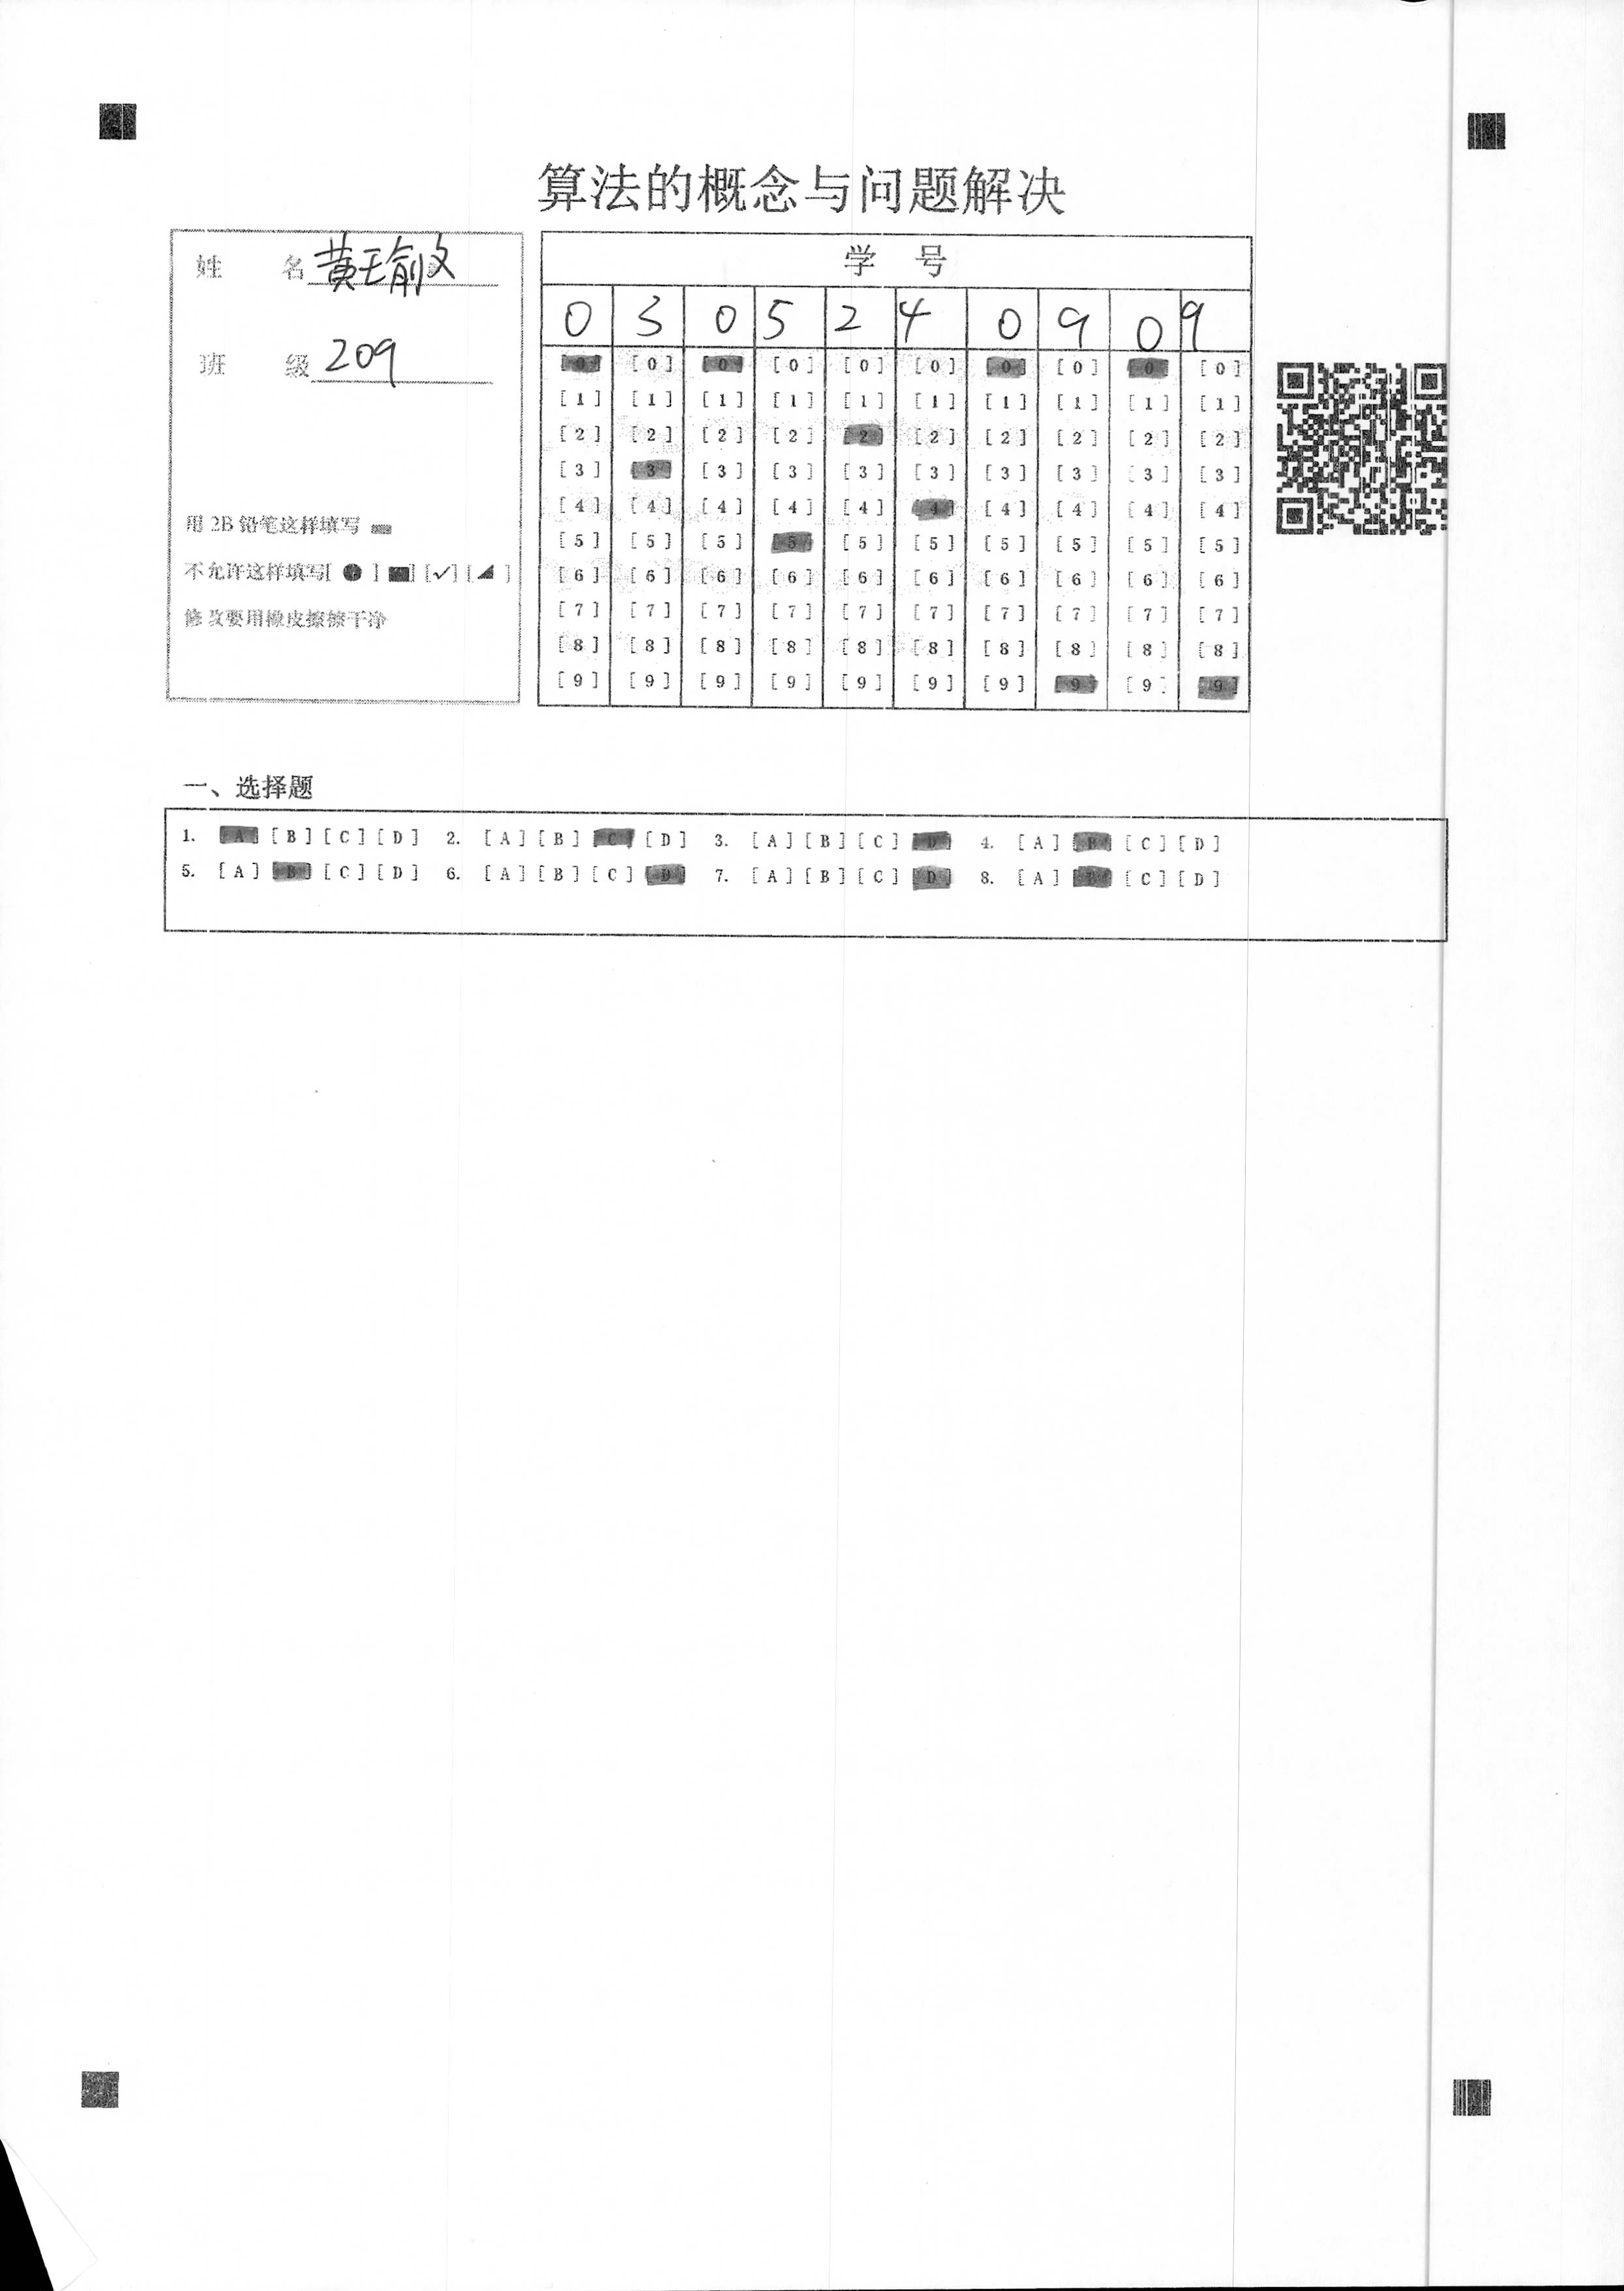 算法的概念与问题解决
姓 名 黄王俞文
班 级 209
用 2B 铅笔这样填写
不允许这样填写[ ● ] [■] [✓] [◢ ]
修改要用橡皮擦擦干净
学 号
0 3 0 5 2 4 0 9 0 9
[0] [0] [0] [0] [0] [0] [0] [0] [0] [0]
[1] [1] [1] [1] [1] [1] [1] [1] [1] [1]
[2] [2] [2] [2] [2] [2] [2] [2] [2] [2]
[3] [3] [3] [3] [3] [3] [3] [3] [3] [3]
[4] [4] [4] [4] [4] [4] [4] [4] [4] [4]
[5] [5] [5] [5] [5] [5] [5] [5] [5] [5]
[6] [6] [6] [6] [6] [6] [6] [6] [6] [6]
[7] [7] [7] [7] [7] [7] [7] [7] [7] [7]
[8] [8] [8] [8] [8] [8] [8] [8] [8] [8]
[9] [9] [9] [9] [9] [9] [9] [9] [9] [9]
一、选择题
1. [A] [B] [C] [D] 2. [A] [B] [C] [D] 3. [A] [B] [C] [D] 4. [A] [B] [C] [D]
5. [A] [B] [C] [D] 6. [A] [B] [C] [D] 7. [A] [B] [C] [D] 8. [A] [B] [C] [D]